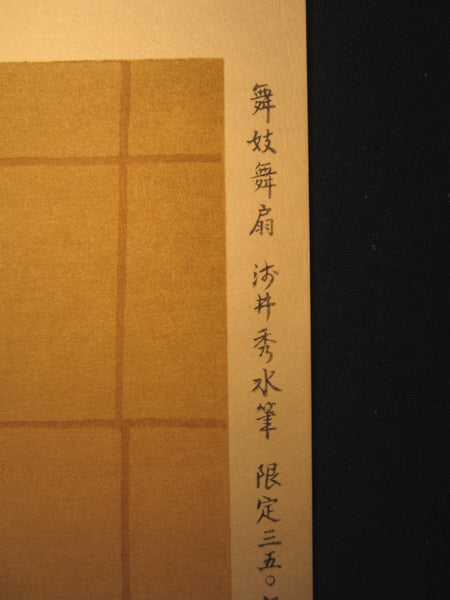 舞妓舞扇 浅井秀水筆 限定三五〇